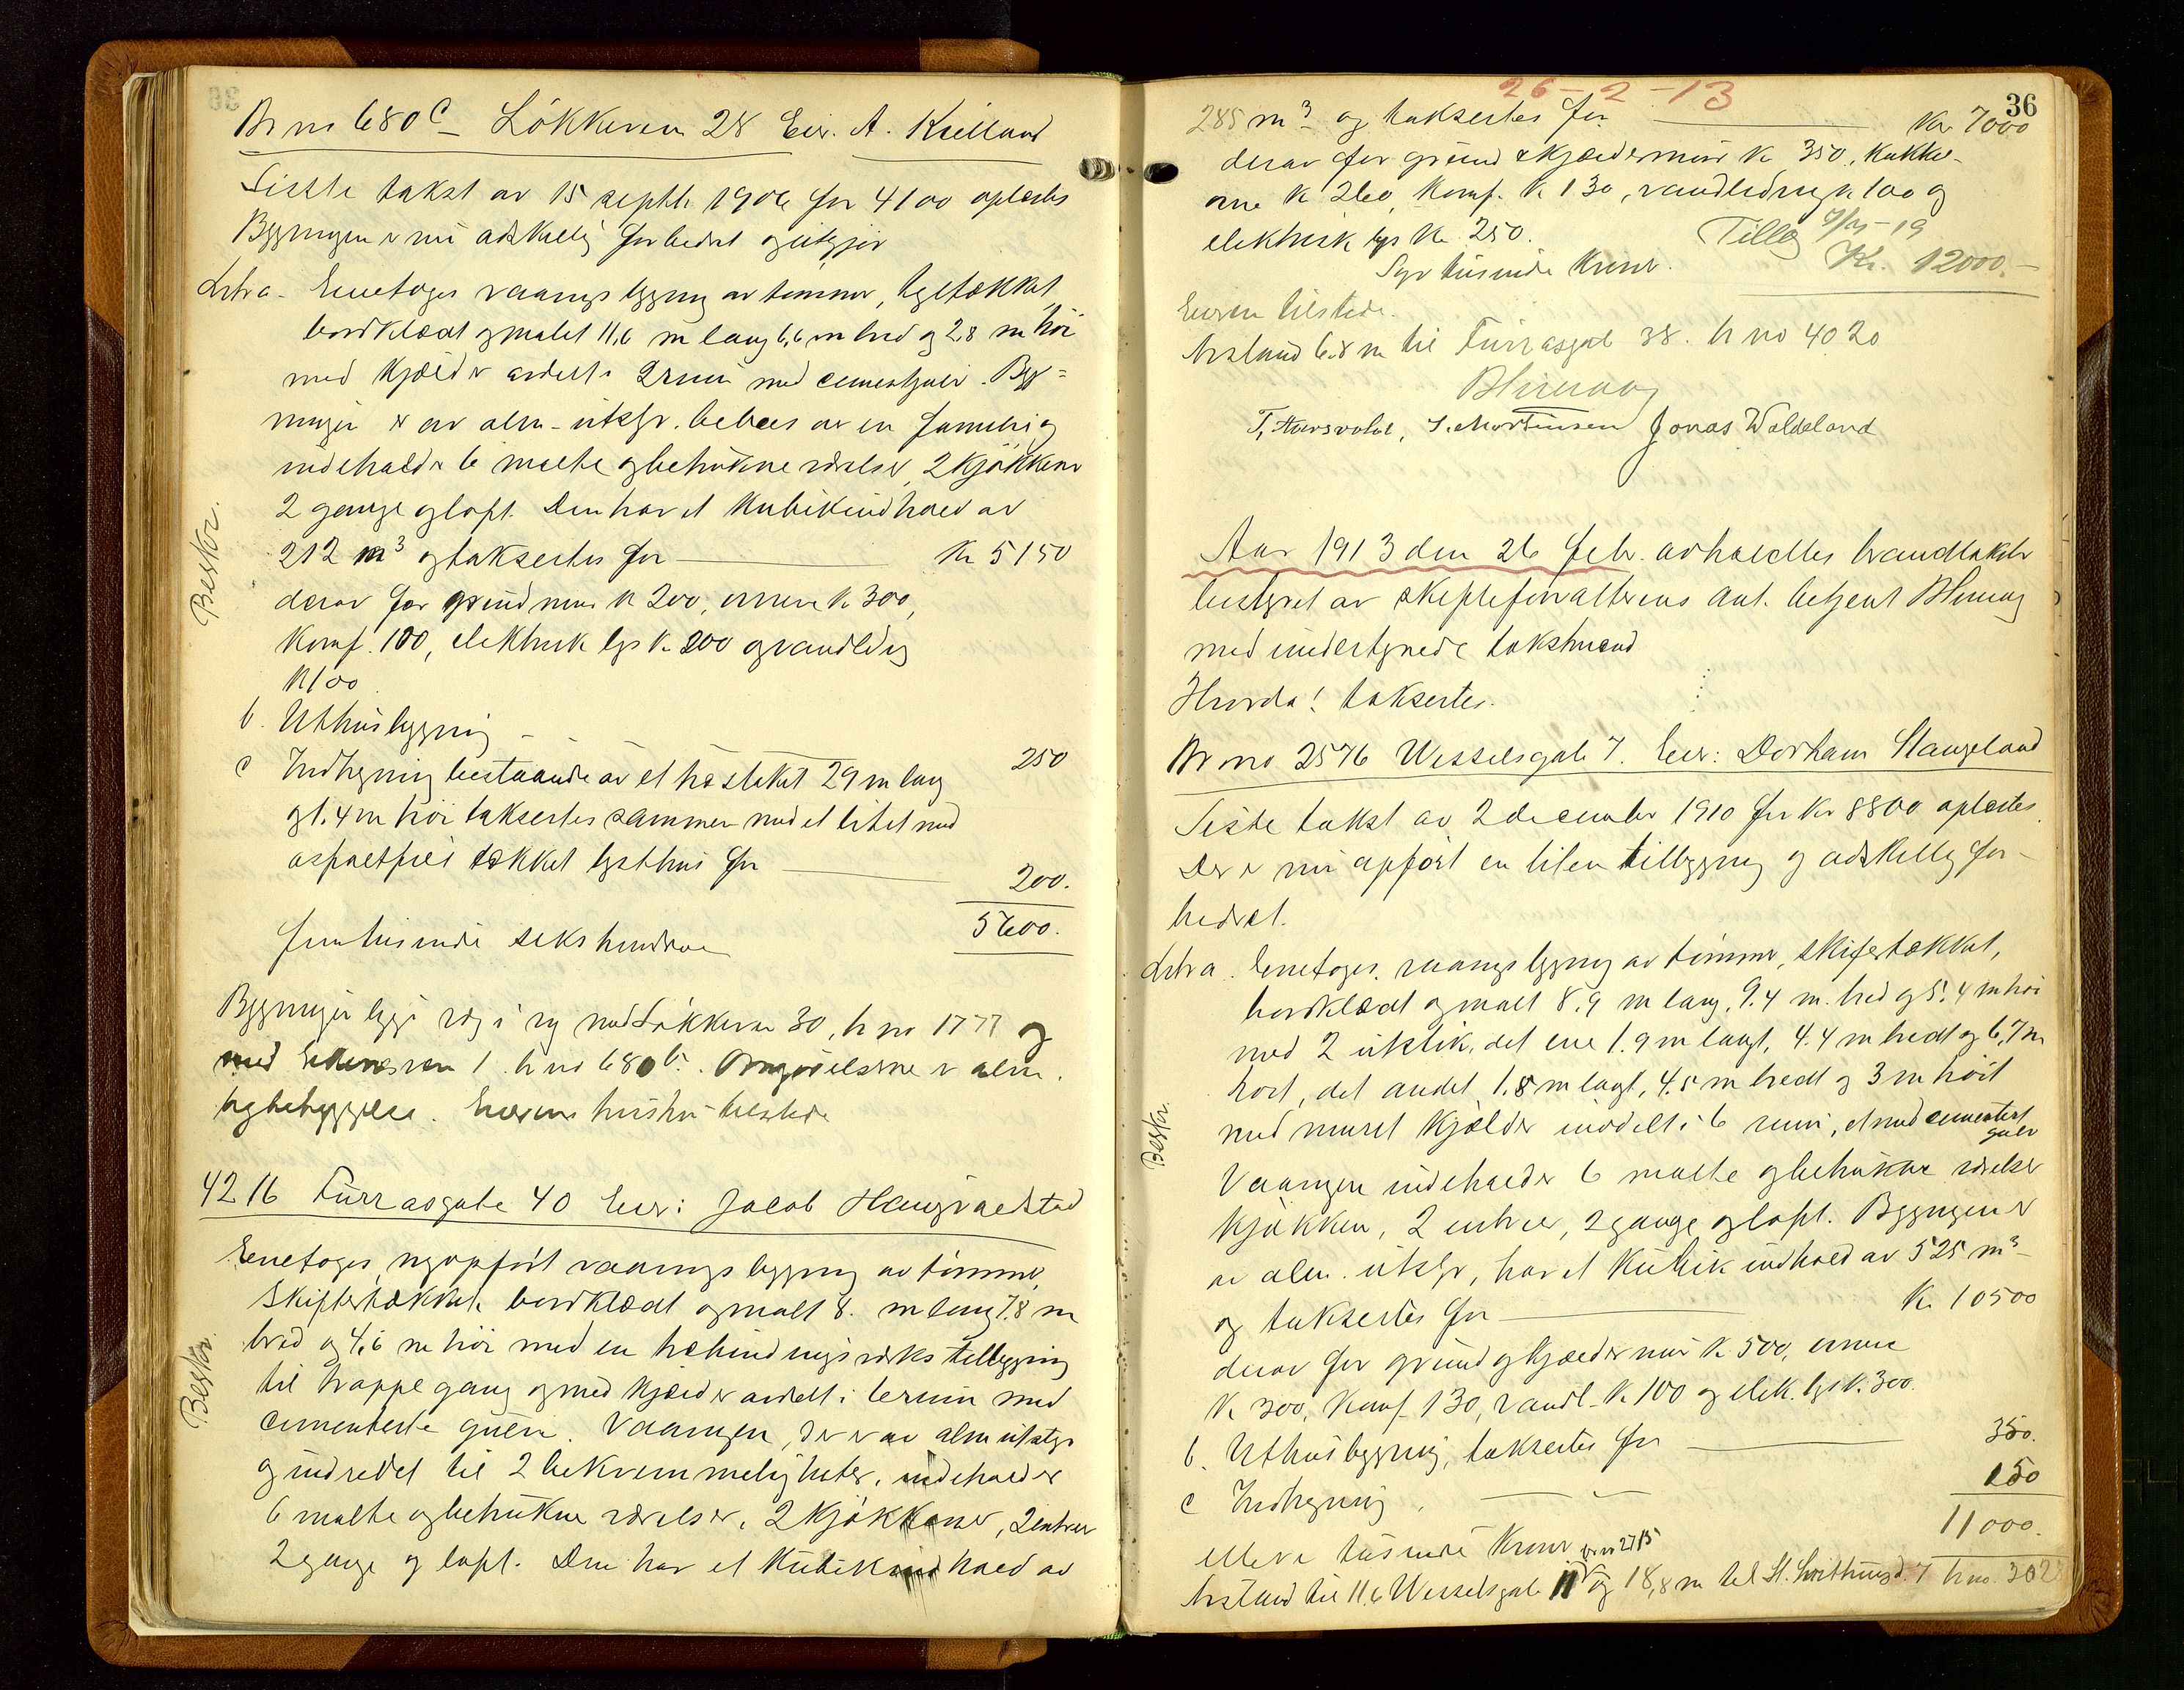 Br no 680 C - Lökkevn 28 Eier. A. Kielland
Siste takst av 15 septbr 1906 for 4100 oplæstes
Bygningen er nu adskillig forbedret og utgjør
Litra - Eenetages vaaningsbygning av tømmer, tegltækket
bordklædt og malet 11,6 m lang 6,6 m bred og 2,8 m høi
med kjælder avdelt i 2 rum med cementgulv. Byg=
ningen er av alm. utstyr. bebos av en familie og
indeholder 6 malte og betrukne værelser, 2 kjøkkener
2 gange og loft. Den har et kubikindhold av
Beskr.
212 m³ og taksertes for Kr 5150
derav for grundmur kr 200, ovnene kr 300,
komf. 100, elektrisk lys kr. 200 og vandledning
kr 100
b. Uthusbygning - - 250
c Indhegning bestaaende av et træstaket 29 m lang
og 1.4 m høi taksertes sammen med et litet med
asfaltfilt tækket lysthus for 200.
5600.
femtusinde sekshundrede
Bygningen ligger væg i væg med Løkkevn 30, br no 1777 og
med 1. br no 680 b. Omgivelserne er alm.
bybebyggelse. Eierens hustru tilstede
4216 Furrasgate 40 Eier: Jacob Haugvaldstad
Eenetages, nyopført vaaningsbygning av tømmer,
Skifertækket, bordklædt og malt 8. m lang 7.8 m
bred og 4,6 m høi med en træbindingsverks tilbygning
Beskr.
til trappegang og med kjælder avdelt i 6 rum med
cementerte gulv. Vaaningen, der er av alm utstyr
og indredet til 2 bekvemmeligheter, indeholder
6 malte og betrukne værelser, 2 kjøkkener, 2 entreer
2 gange og loft. Den har et kubikindhold av
26-2-13
36
285 m³ og taksertes for Kr 7000
derav for grund & kjældermur kr 350, kakkel-
ovne kr 260, komf. kr 130, vandledning kr 100 og
elektrisk lys kr 250. Tillæg -19
Syv tusinde kroner. Kr. 12000.-
Eieren tilstede.
Avstand 6.8 m til Furrasgate 38. br no 4020
T. Aarsvold, S. Mortensen Jonas Waldeland
Aar 1913 den 26 febr. avholdtes brandtakst
bestyret av skifteforvalterens aut. betjent
med undertegnede takstmænd
Hvorda! taksertes.
Br no 2576 Wesselsgate 7. Eier: Dortham Stangeland
Siste takst av 2 december 1910 for kr 8800 oplæstes.
Der er nu opført en liten tilbygning og adskillig for-
bedret.
Litra a. Eenetages. vaaningsbygning av tømmer, skifertækket,
bordklædt og malt 8.9 m lang, 9.4 m. bred og 5.4 m høi
med 2 utstik, det ene 1.9 m langt, 4.4 m bredt og 6,7 m
høit, det andet 1.8 m langt, 4.5 m bredt og 3 m høit
Beskr.
med muret kjælder inddelt i 6 rum, et med cementert
gulv
Vaaningen indeholder 6 malte og betrukne værelser
kjøkken, 2 entreer, 2 gange og loft. Bygningen er
av alm. utstyr, har et kubikindhold av 525 m³
og taksertes for Kr. 10500
derav for grund og kjældermur kr 500, ovnene
kr 300, komf. 130, vandl. kr 100 og elek. lys kr. 300.
b. Uthusbygning, taksertes for 350.
c Indhegning, - 150
11000.
elleve tusinde kroner
br no 2715
Avstand til 11.6 Wesselsgate 11 og 18,8 m til St. Svithunsgd. 7 br no. 3028